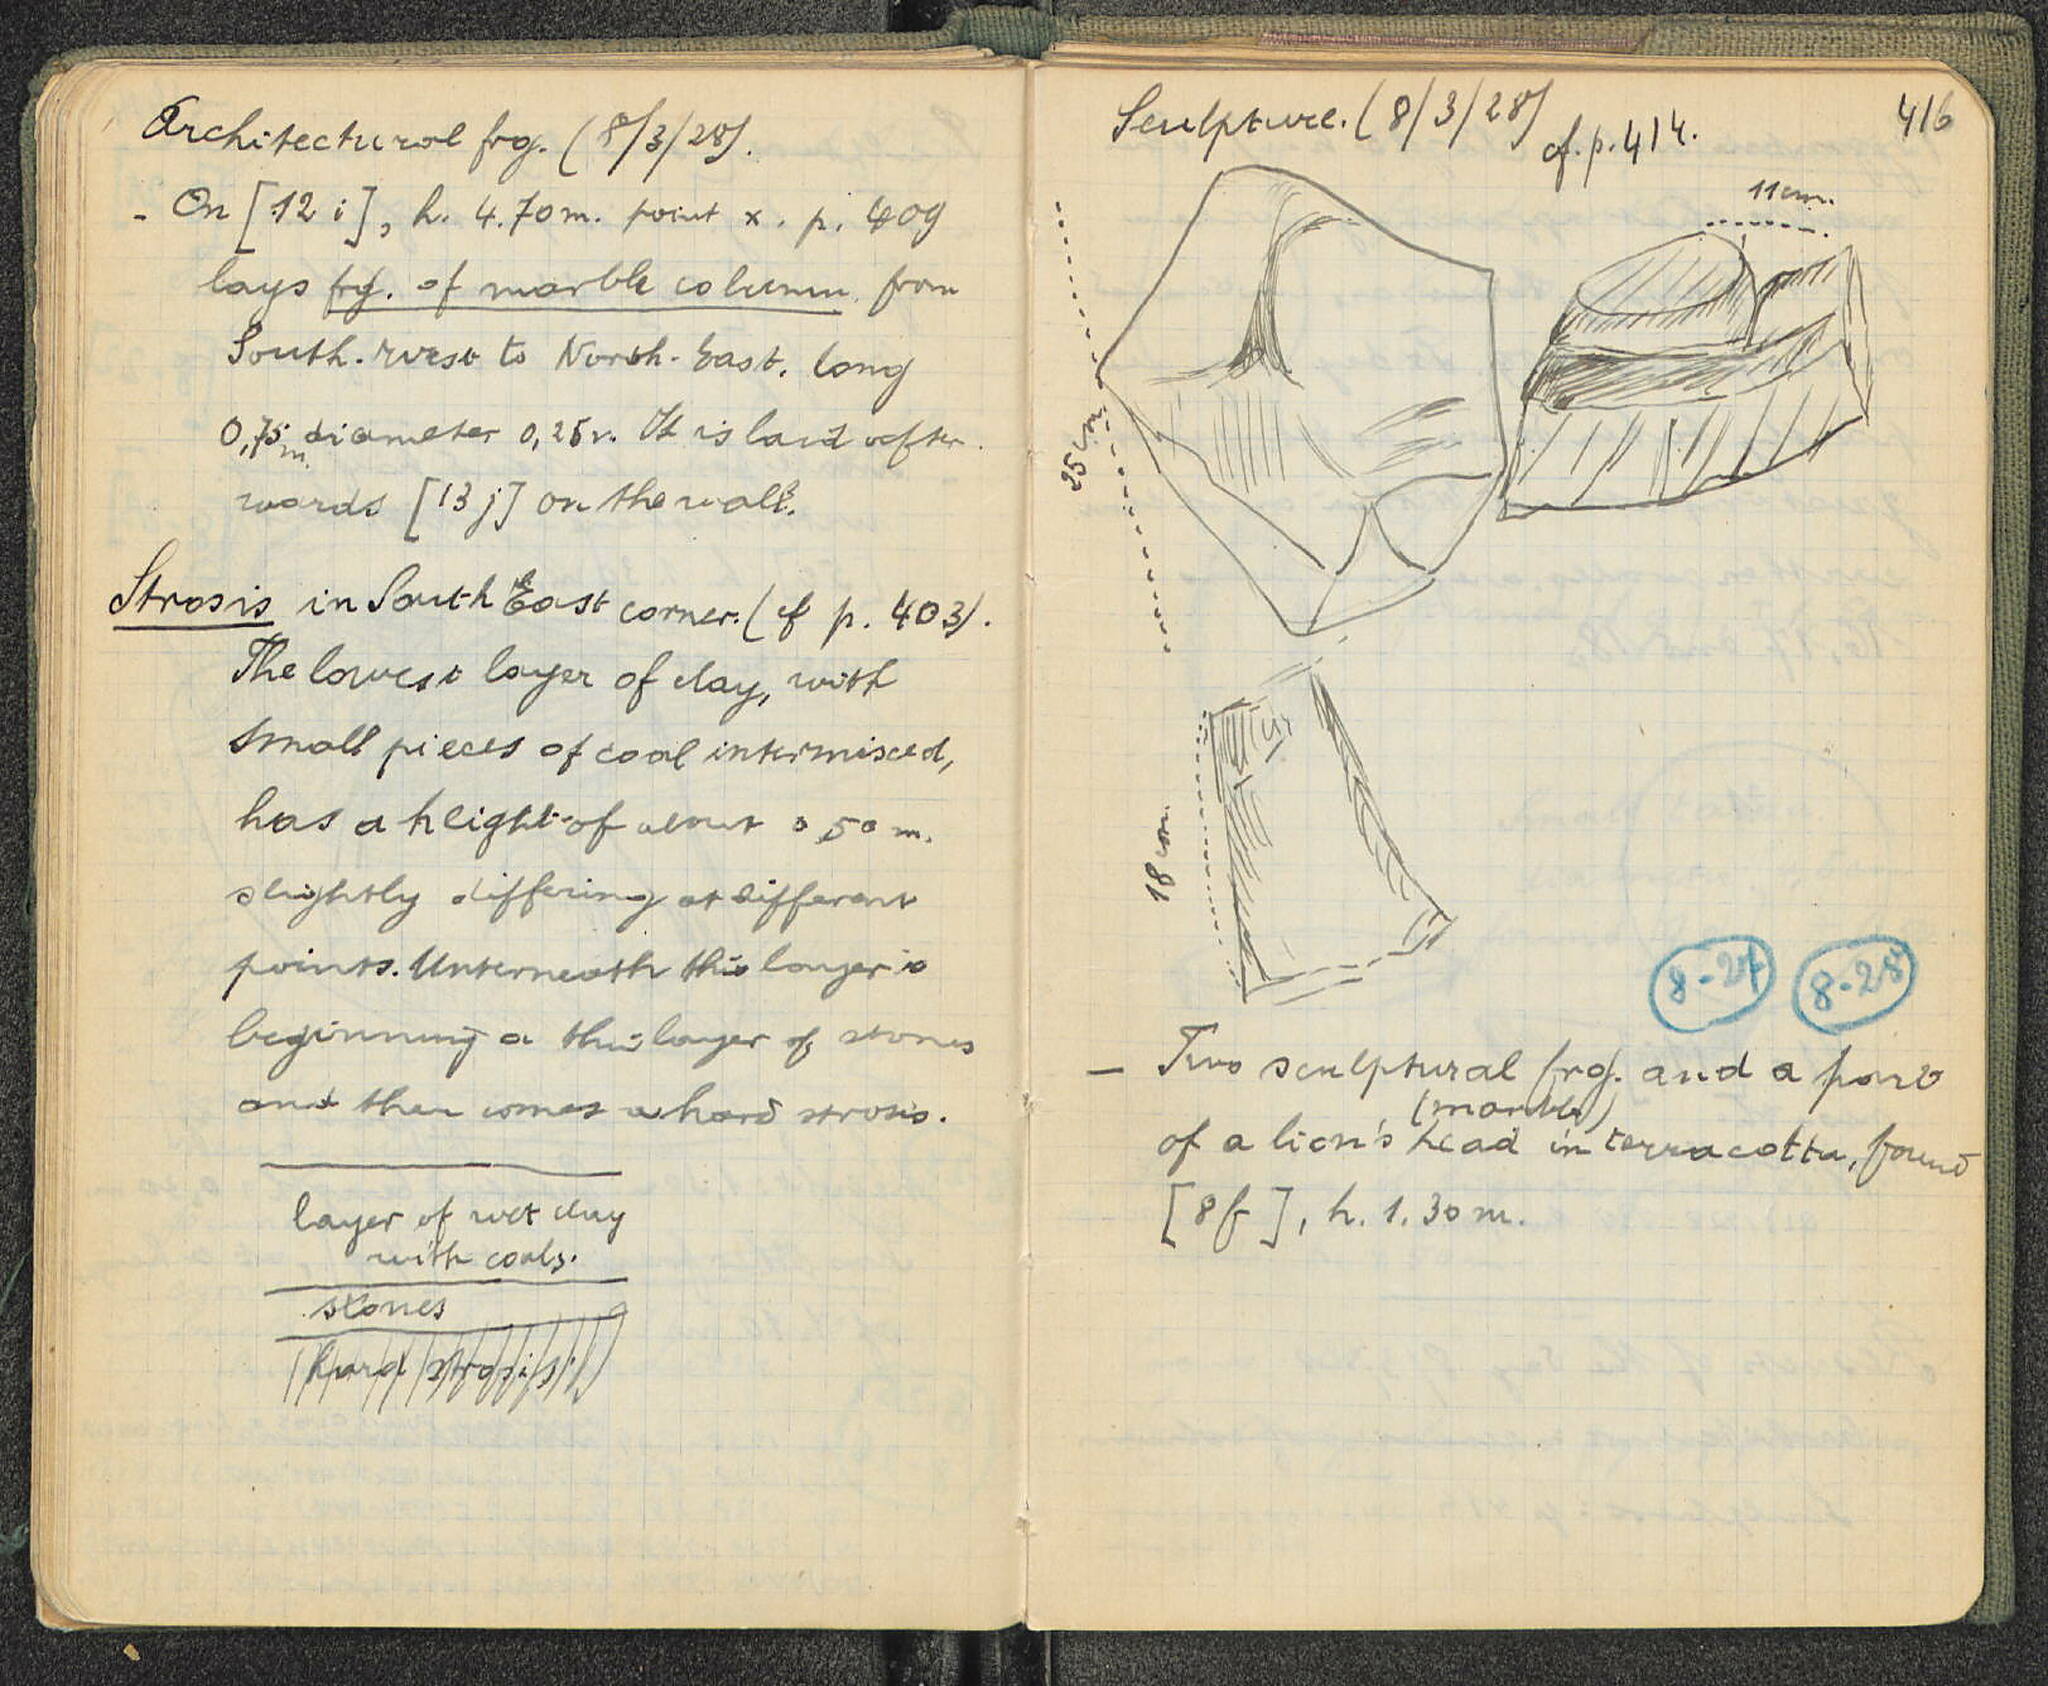 Architectural frg. (8/3/28).
- On [12 i], h. 4.70m. point x. p. 409
lays frg. of marble column from
South-west to North-East. long
0,75 diameter 0,25
m.
It is laid after
wards [13 j] on the wall.
Strosis in South East corner. (cf p. 403).
The lowest layer of clay, with
small pieces of coal intermisced,
has a height of about 0.50 m.
slightly differing at different
points. Underneath this layer is
beginning a thin layer of stones
and then comes a hard strosis.
layer of wet clay
with coals.
stones
hard strosis
416
Sculpture. (8/3/28)
cf. p. 414.
11 cm.
25 cm
18 cm.
8-27
8-28
- Two sculptural frg. and a part
(marble)
of a lion's head in terracotta, found
[8f], h. 1.30 m.